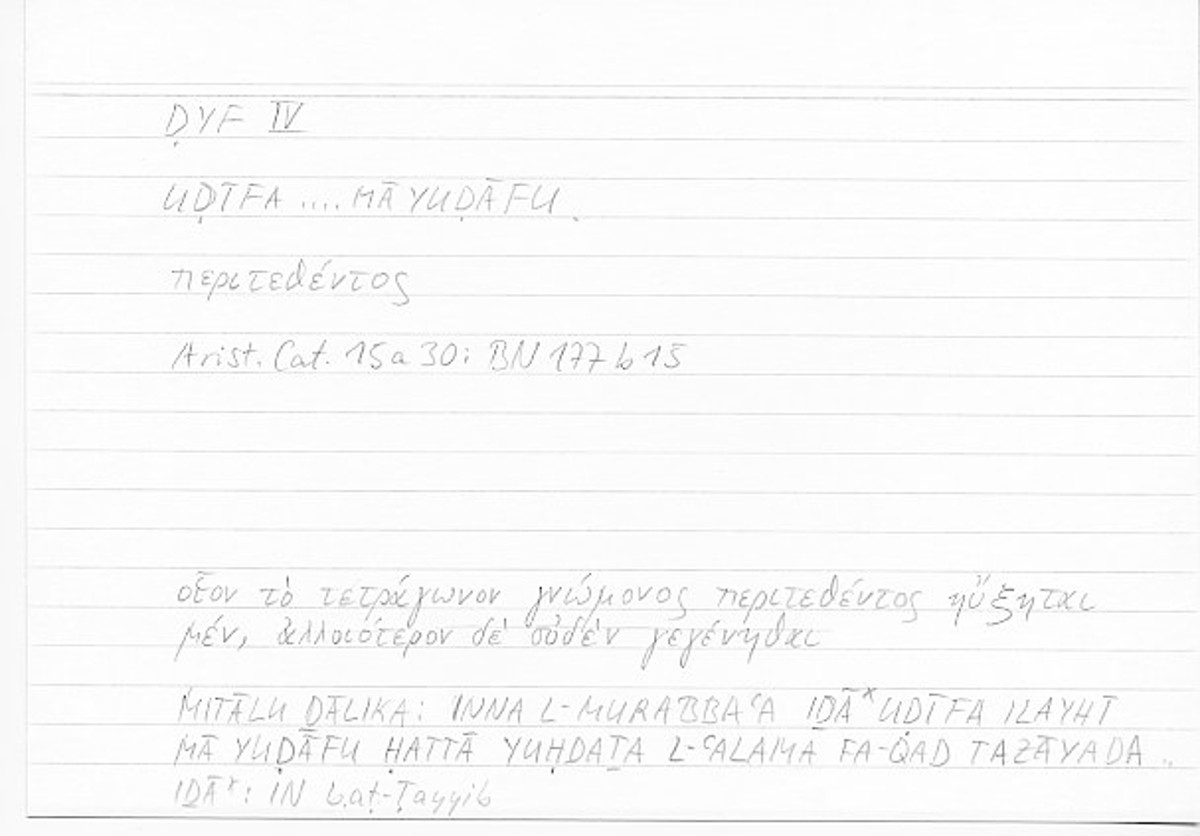 ḌYF IV
UḌĪFA .... MĀ YUḌĀFU.
περιτεθέντος
Arist. Cat. 15a30; BN 177b15
οἷον τὸ τετράγωνον γνώμονος περιτεθέντος ηὔξηται
μέν, ἀλλοιότερον δὲ οὐδὲν γεγένηται
MIṮĀLU ḎĀLIKA: INNA L-MURABBAʿA IḎĀˣ UḌĪFA ILAYHĪ
MĀ YUḌĀFU ḤATTĀ YUḤDAṮA L-ʿALAMA FA-QAD TAZĀYADA ..
IḎĀˣ: IN b.aṭ-Ṭayyib